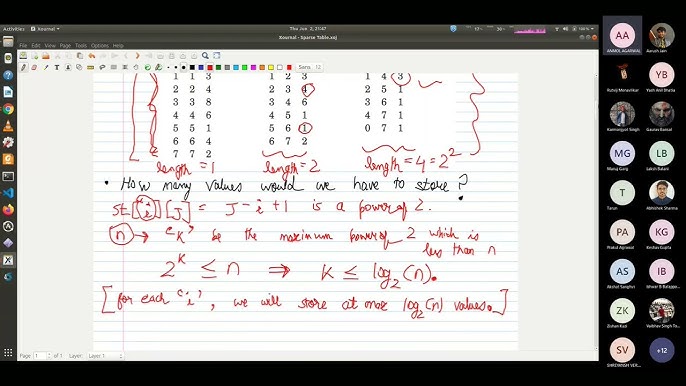 Activities
Xournal
Thu Jun 3, 21:47
Xournal - Sparse Table.xoj
100 %
Sans 12
1 1 3 1 2 3 1 4 3
2 2 4 2 3 4 2 5 1
3 3 8 3 4 6 3 6 1
4 4 6 4 5 1 4 7 1
5 5 1 5 6 1 0 7 1
6 6 2 6 7 2
7 7 2
length = 1 length = 2 length = 4 = 2²
• How many values would we have to store?
st[i][J] = J - i + 1 is a power of 2.
n → "K" be the maximum power of 2 which is
less than n
2^K ≤ n ⇒ K ≤ log₂(n).
[for each 'i', we will store at max log₂(n) values.]
Page 1 of 1 Layer: Layer 1
AA
ANMOL AGARWAL
Aarush Jain
Rutvij Menavlikar
YB
Yash Anil Bhatia
Kanmanjyot Singh
Gaurav Bansal
MG
Manuj Garg
LB
Laksh Balani
T
Tarun
Abhishek Sharma
PA
Prakul Agrawal
KG
Keshav Gupta
AS
Akshat Sanghvi
IB
Ishwar B Balappa...
ZK
Zishan Kazi
Vaibhav Singh To...
SV
SHREYANSH VER...
+12